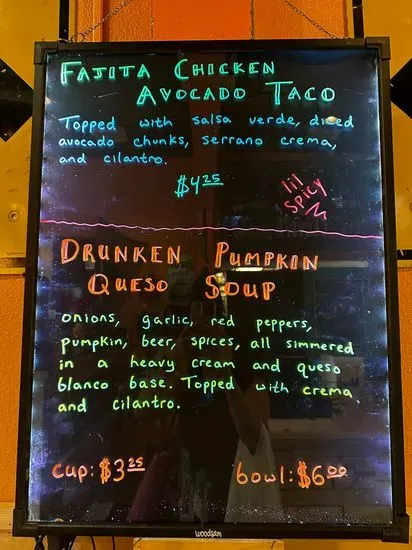 FAJITA CHICKEN
AVOCADO TACO
Topped with salsa verde, diced
avocado chunks, serrano crema,
and cilantro.
$4.25
lil
spicy
DRUNKEN PUMPKIN
QUESO SOUP
onions, garlic, red peppers,
pumpkin, beer, spices, all simmered
in a heavy cream and queso
blanco base. Topped with crema
and cilantro.
cup: $3.25 bowl: $6.00
woodsam